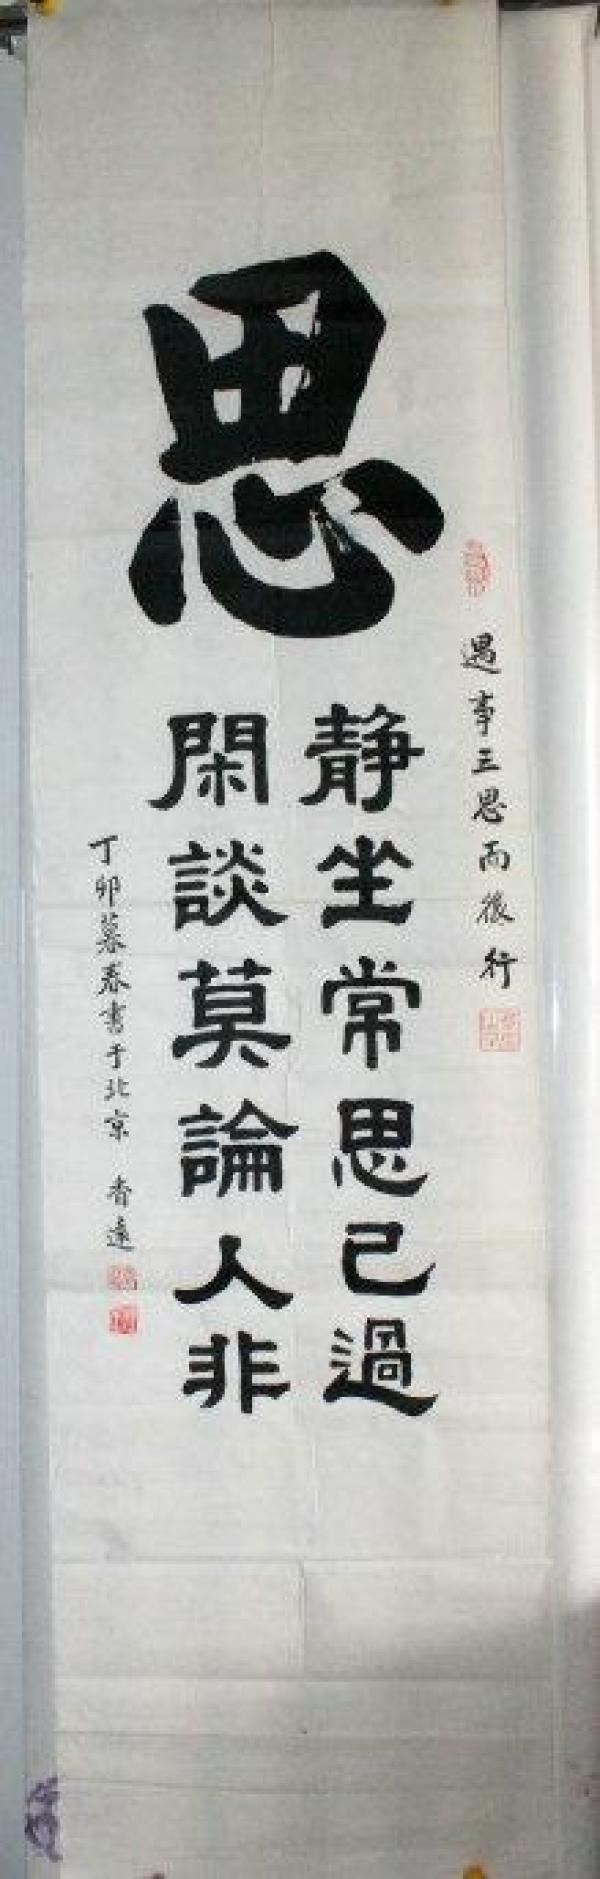 思
遇事三思而後行
静坐常思己過
閑談莫論人非
丁卯暮春書于北京 香遠